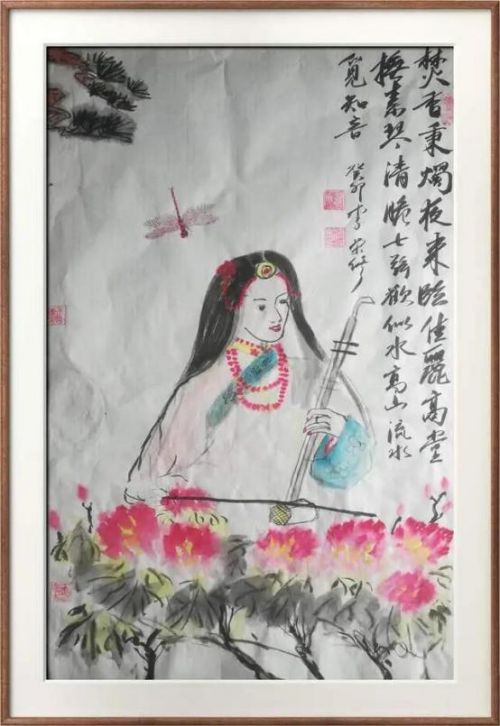 焚香秉燭夜来临佳麗高堂
撫素琴清脆七弦似水高山流水
覓知音
癸卯李